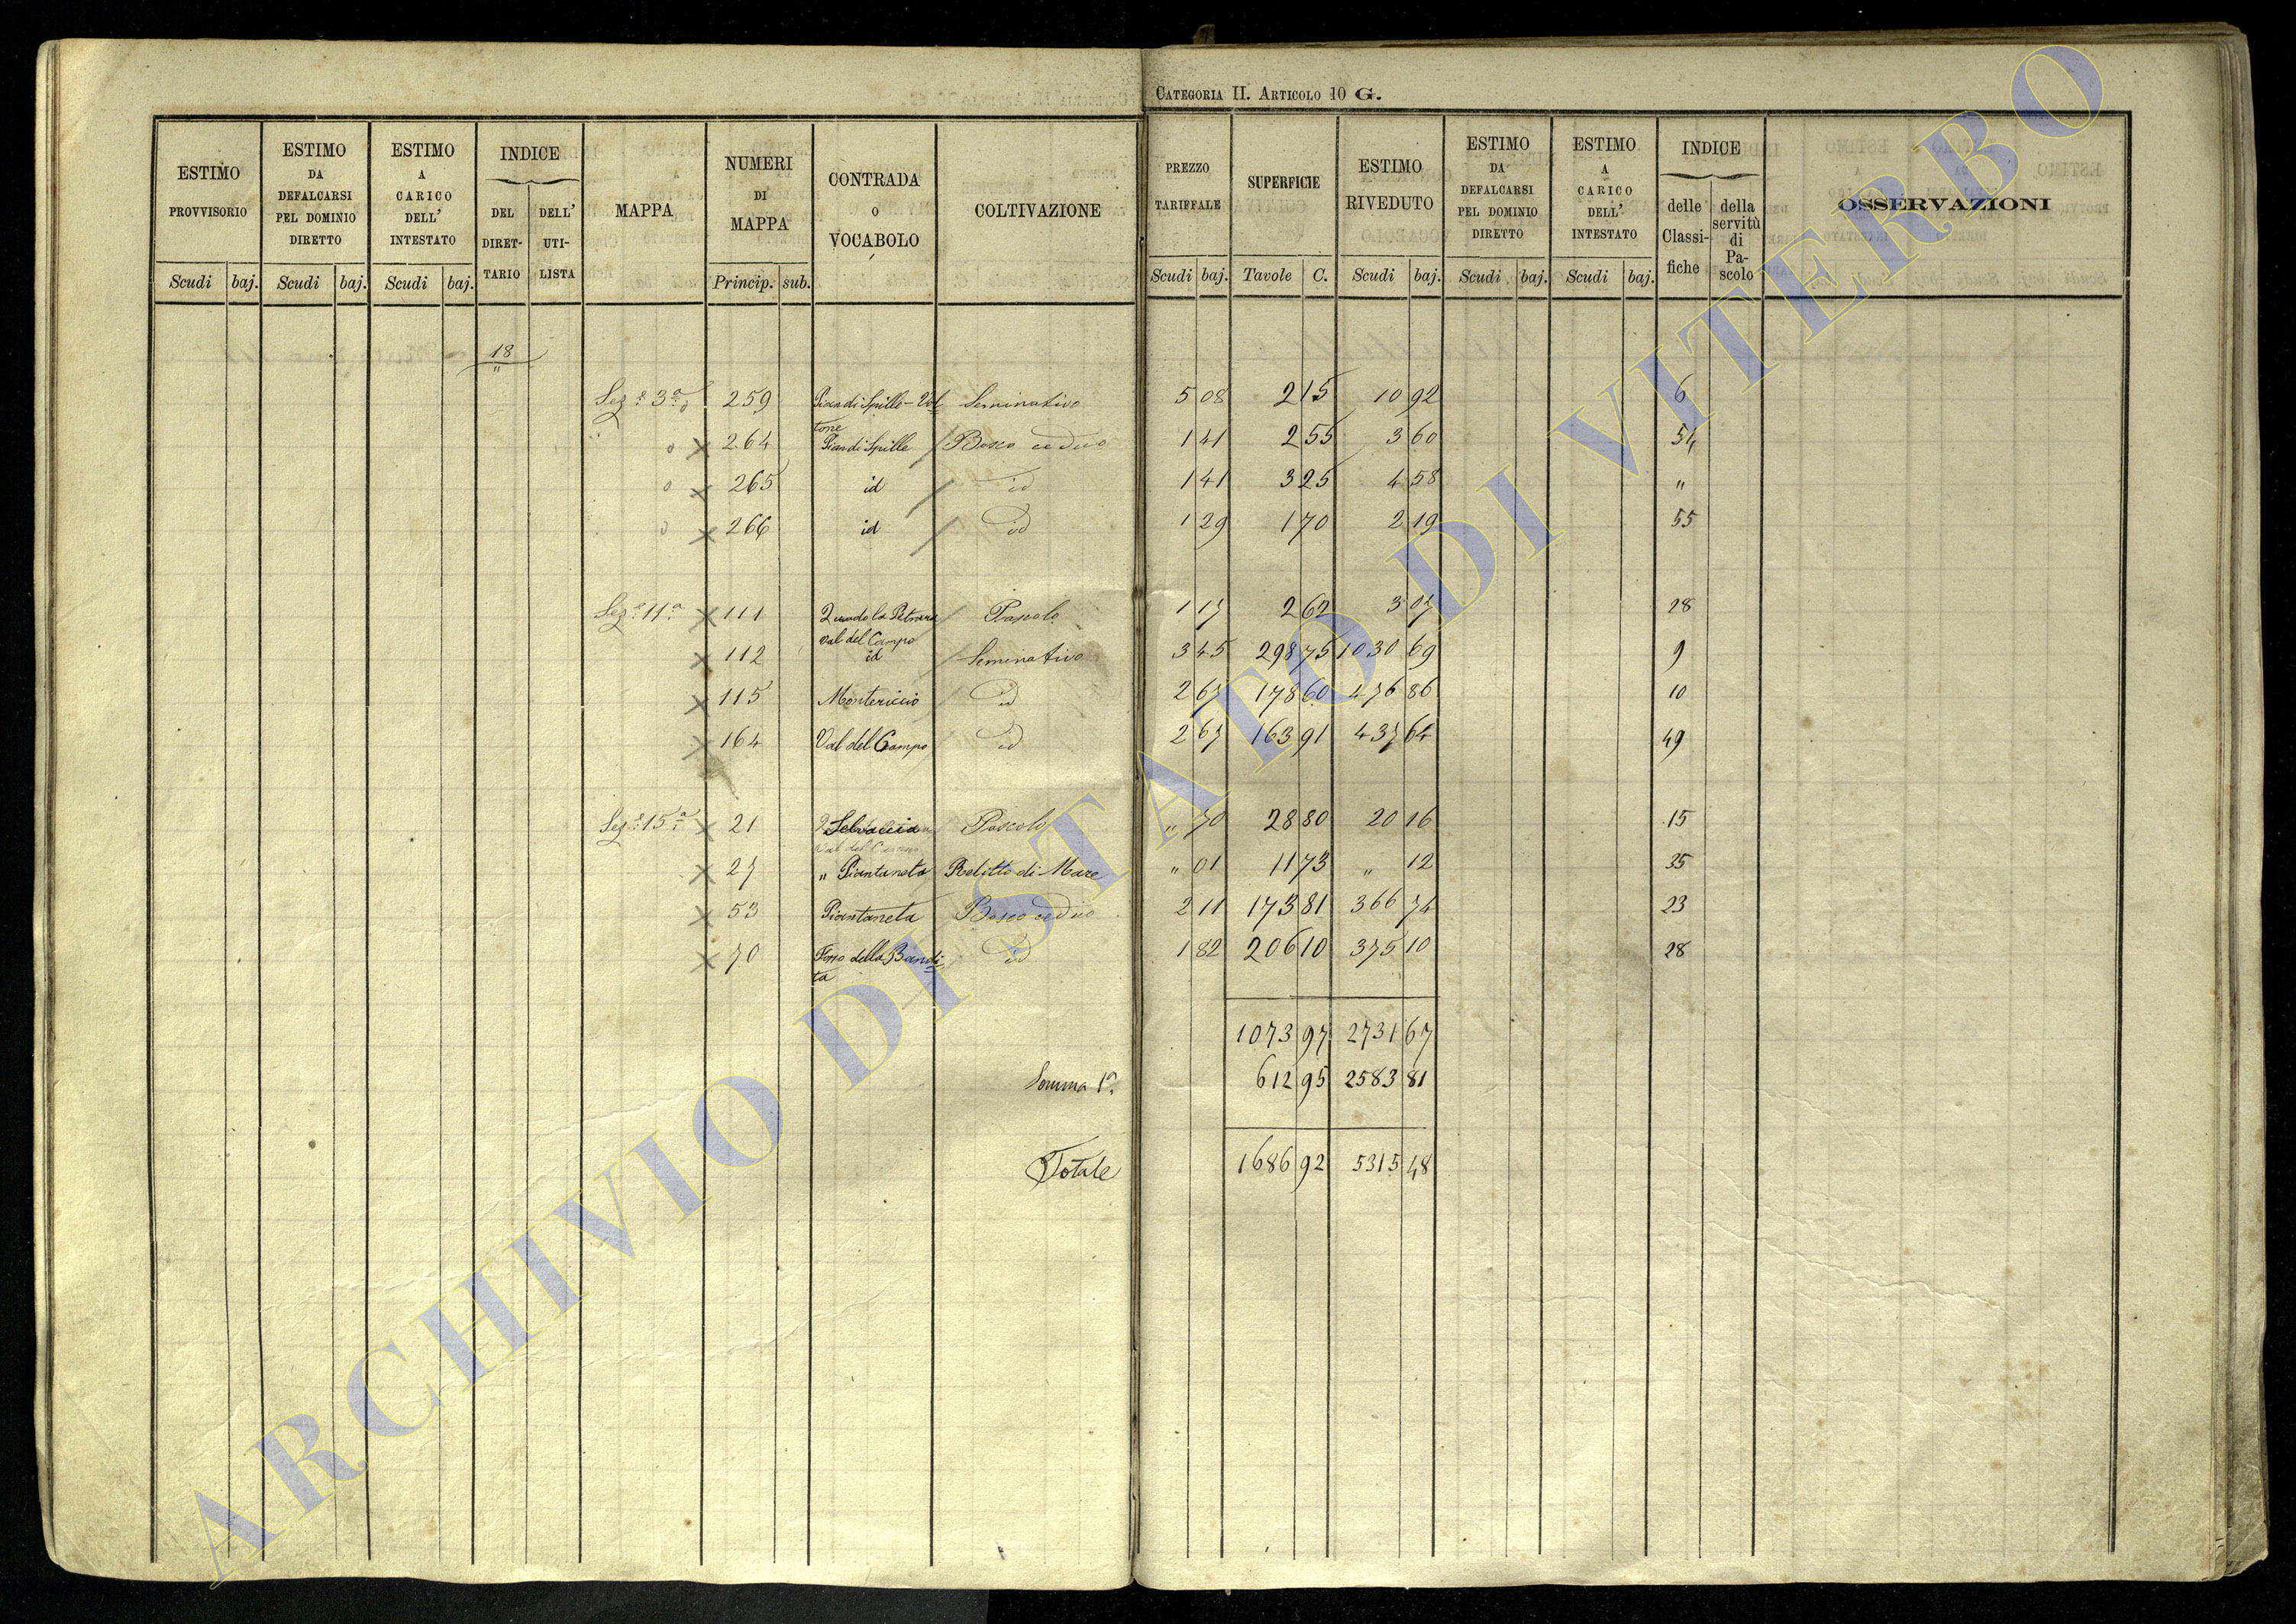 CATEGORIA II. ARTICOLO 10 G.
ESTIMO PROVVISORIO | ESTIMO DA DEFALCARSI PEL DOMINIO DIRETTO | ESTIMO A CARICO DELL' INTESTATO | INDICE DEL DIRETTARIO | DELL' UTILISTA | MAPPA | NUMERI DI MAPPA | CONTRADA O VOCABOLO | COLTIVAZIONE | PREZZO TARIFFALE | SUPERFICIE | ESTIMO RIVEDUTO | ESTIMO DA DEFALCARSI PEL DOMINIO DIRETTO | ESTIMO A CARICO DELL' INTESTATO | INDICE delle Classifiche | della servitù di Pascolo | OSSERVAZIONI
Scudi | baj. | Scudi | baj. | Scudi | baj. | Princip. | sub. | Scudi | baj. | Tavole | C. | Scudi | baj. | Scudi | baj. | Scudi | baj.
18
"
Sez.e 3a | 259 | Pian di Spille - Voltone | Seminativo | 5 08 | 2 15 | 10 92 | 6
264 | Pian di Spille | Bosco ceduo | 1 41 | 2 55 | 3 60 | 54
265 | id | id | 1 41 | 3 25 | 4 58 | "
266 | id | id | 1 29 | 1 70 | 2 19 | 55
Sez.e 11.a | 111 | Val del Campo | Pascolo | 1 17 | 2 62 | 3 07 | 28
112 | id | Seminativo | 3 45 | 298 75 | 1030 69 | 9
115 | Montericcio | id | 2 67 | 178 60 | 476 86 | 10
164 | Val del Campo | id | 2 67 | 163 91 | 437 64 | 49
Sez.e 15.a | 21 | Selvaccia | Pascolo | " 70 | 28 80 | 20 16 | 15
27 | " Piantaneta | Relitto di Mare | " 01 | 11 73 | " 12 | 35
53 | Piantaneta | Bosco ceduo | 2 11 | 173 81 | 366 74 | 23
70 | Fosso della Bandita | id | 1 82 | 206 10 | 375 10 | 28
1073 97 | 2731 67
Somma 1a. | 612 95 | 2583 81
Totale | 1686 92 | 5315 48
ARCHIVIO DI STATO DI VITERBO